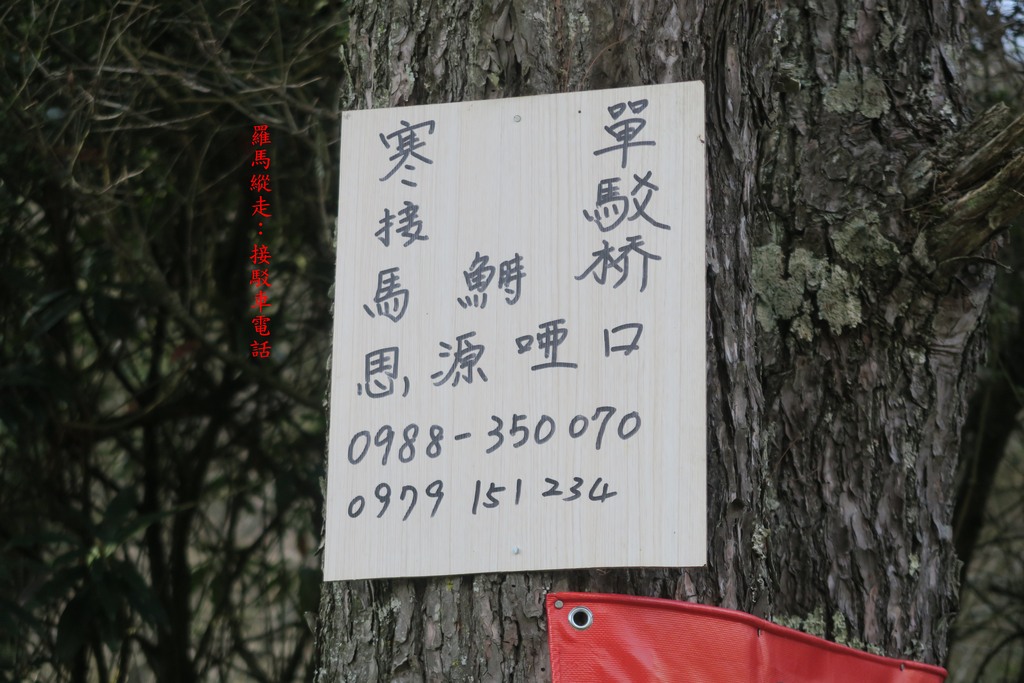 羅馬縱走：接駁車電話
單駁橋
寒接馬
鰣
思源啞口
0988-350070
0979 151 234